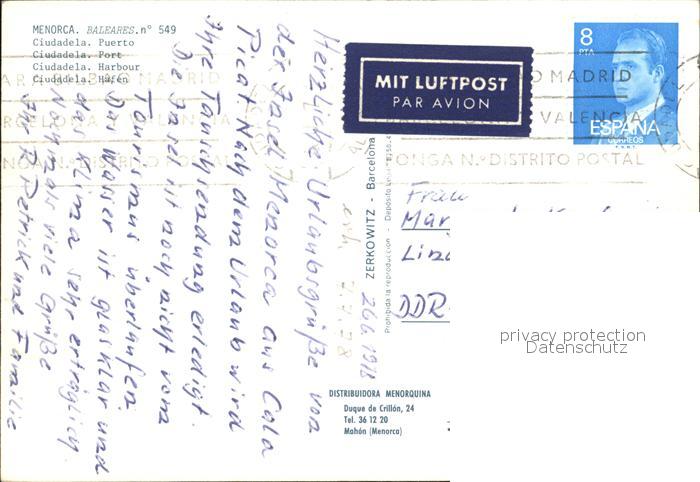 MENORCA. BALEARES. n° 549
Ciudadela. Puerto
Ciudadela. Port
Ciudadela. Harbour
Ciudadela. Hafen
MIT LUFTPOST
PAR AVION
8
PTA
ESPAÑA
CORREOS
MADRID
VALENCIA
N.º DISTRITO POSTAL
Herzliche Urlaubsgrüße von
der Insel Menorca aus Cala
Pica! Nach dem Urlaub wird
Ihre Tauschsendung erledigt.
Die Insel ist noch nicht vom
Tourismus überlaufen.
Das Wasser ist glasklar und
das Klima sehr erträglich.
Nochmals viele Grüße
Ihr Patrick und Familie
26.6.1978
erh. 7.7.78
ZERKOWITZ - Barcelona
Prohibida la reproducción - Depósito Legal
Frau
Mar
DDR-
privacy protection
Datenschutz
DISTRIBUIDORA MENORQUINA
Duque de Crillón, 24
Tel. 36 12 20
Mahón (Menorca)